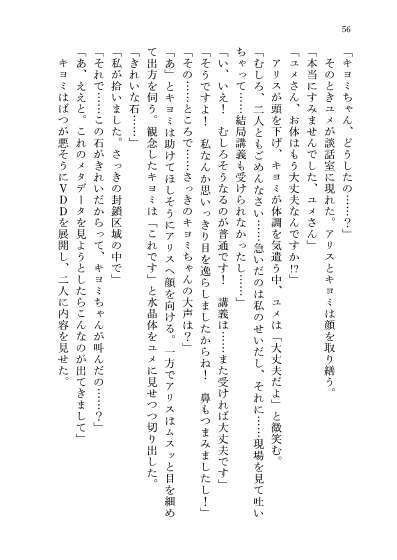 56
「キヨミちゃん、どうしたの……？」
そのときユメが談話室に現れた。アリスとキヨミは顔を取り繕う。
「本当にすみませんでした、ユメさん」
「ユメさん、お体はもう大丈夫なんですか!?」
アリスが頭を下げ、キヨミが体調を気遣う中、ユメは「大丈夫だよ」と微笑む。
「むしろ、二人ともごめんなさい……急いだのは私のせいだし、それに……現場を見て吐い
ちゃって……結局講義も受けられなかったし……」
「い、いえ！　むしろそうなるのが普通です！　講義は……また受ければ大丈夫です」
「そうですよ！　私なんか思いっきり目を逸らしましたからね！　鼻もつまみましたし！」
「その……ところで……さっきのキヨミちゃんの大声は？」
「あ」とキヨミは助けてほしそうにアリスへ顔を向ける。一方でアリスはムスッと目を細め
て出方を伺う。観念したキヨミは「これです」と水晶体をユメに見せつつ切り出した。
「きれいな石……」
「私が拾いました。さっきの封鎖区域の中で」
「それで……この石がきれいだからって、キヨミちゃんが叫んだの……？」
「あ、ええと。これのメタデータを見ようとしたらこんなのが出てきまして」
キヨミはばつが悪そうにＶＤＤを展開し、二人に内容を見せた。